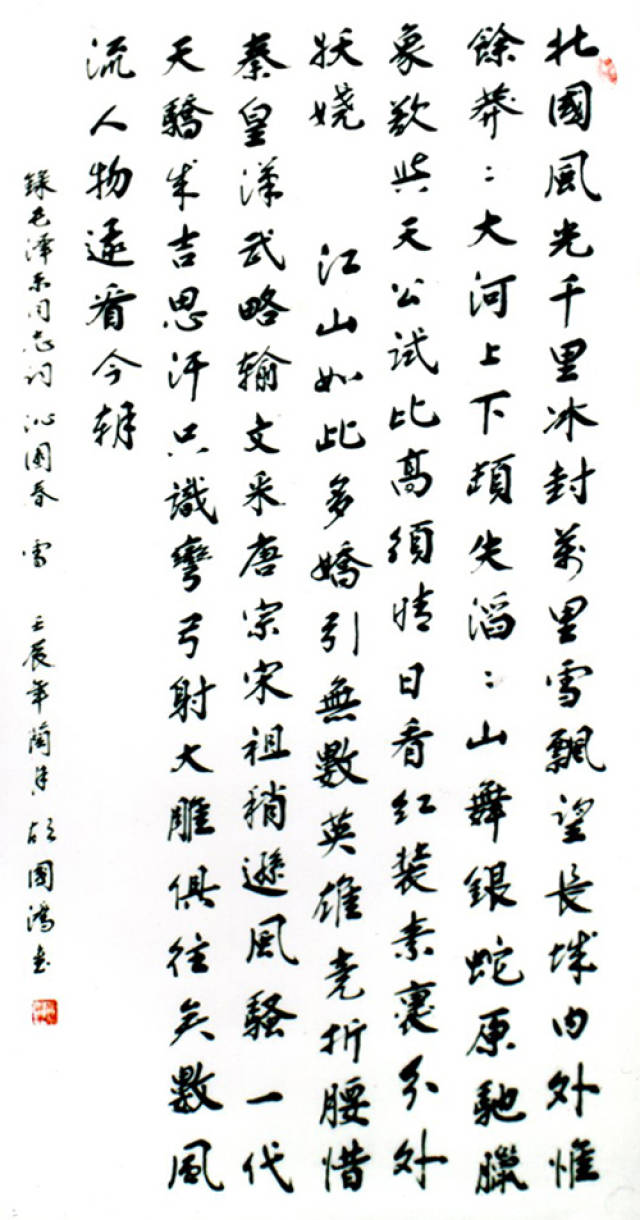 北國風光千里冰封萬里雪飄望長城內外惟
餘莽：大河上下頓失滔：山舞銀蛇原馳臘
象欲與天公試比高須晴日看紅裝素裹分外
妖嬈 江山如此多嬌引無數英雄竟折腰惜
秦皇漢武略輸文采唐宗宋祖稍遜風騷一代
天驕成吉思汗只識彎弓射大雕俱往矣數風
流人物還看今朝
錄毛澤東同志詞 沁園春 雪 壬辰年蘭月 胡國鴻書